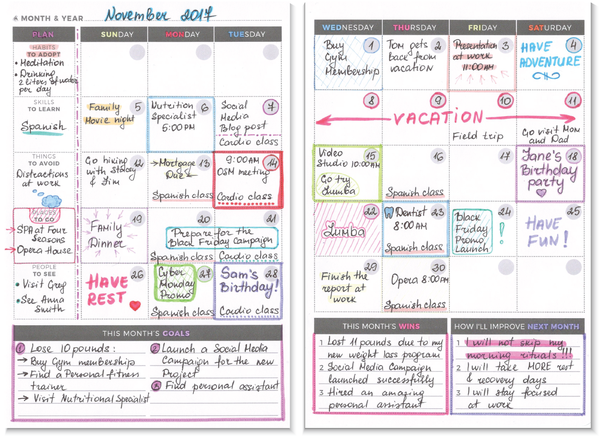 & MONTH & YEAR
November 2017
PLAN
SUNDAY
MONDAY
TUESDAY
HABITS
TO ADOPT
• Meditation
• Drinking
2 liters of water
per day
SKILLS
TO LEARN
Spanish
THINGS
TO AVOID
Distractions
at work
PLACES
TO GO
→ SPA at Four
Seasons
→ Opera House
PEOPLE
TO SEE
• Visit Greg
• See Anna
Smith
5
Family
Movie night
6
Nutrition
Specialist
5:00PM
7
Social
Media
Blog post
Cardio class
12
Go hiking
with Stacey
& Jim
13
→ Mortgage
Due
Spanish class
14
9:00AM
OSM meeting
Cardio class
19
Family
Dinner
20
21
Prepare for the
Black Friday Campaign
Spanish class
Cardio class
26
HAVE
REST
27
Cyber
Monday
Promo
Spanish class
28
Sam's
Birthday!
Cardio class
THIS MONTH'S GOALS
1 Lose 10 pounds:
→ Buy Gym membership
→ Find a Personal fitness
trainer
→ Visit Nutritional Specialist
2 Launch a Social Media
Campaign for the new
Project
3 Find personal assistant
WEDNESDAY
THURSDAY
FRIDAY
SATURDAY
1
Buy
Gym
Membership
2
Tom gets
back from
vacation
3
Presentation
at work
11:00AM
4
HAVE
ADVENTURE
8
9
10
11
VACATION
Field trip
Go visit Mom
and Dad
15
Video
Studio 10:00AM
Go try
Zumba
16
Spanish class
17
18
Jane's
Birthday
party
22
Zumba
23
Dentist
8:00PM
Spanish class
24
Black
Friday
Promo
Launch
!
25
HAVE
FUN!
29
Finish the
report at
work
30
Opera 8:00PM
Spanish class
THIS MONTH'S WINS
1 Lost 11 pounds due to my
new weight loss program
2 Social Media Campaign
launched successfully
3 Hired an amazing
personal assistant
HOW I'LL IMPROVE NEXT MONTH
1 I will not skip my
morning rituals!!!
2 I will take MORE rest
& recovery days
3 I will stay focused
at work